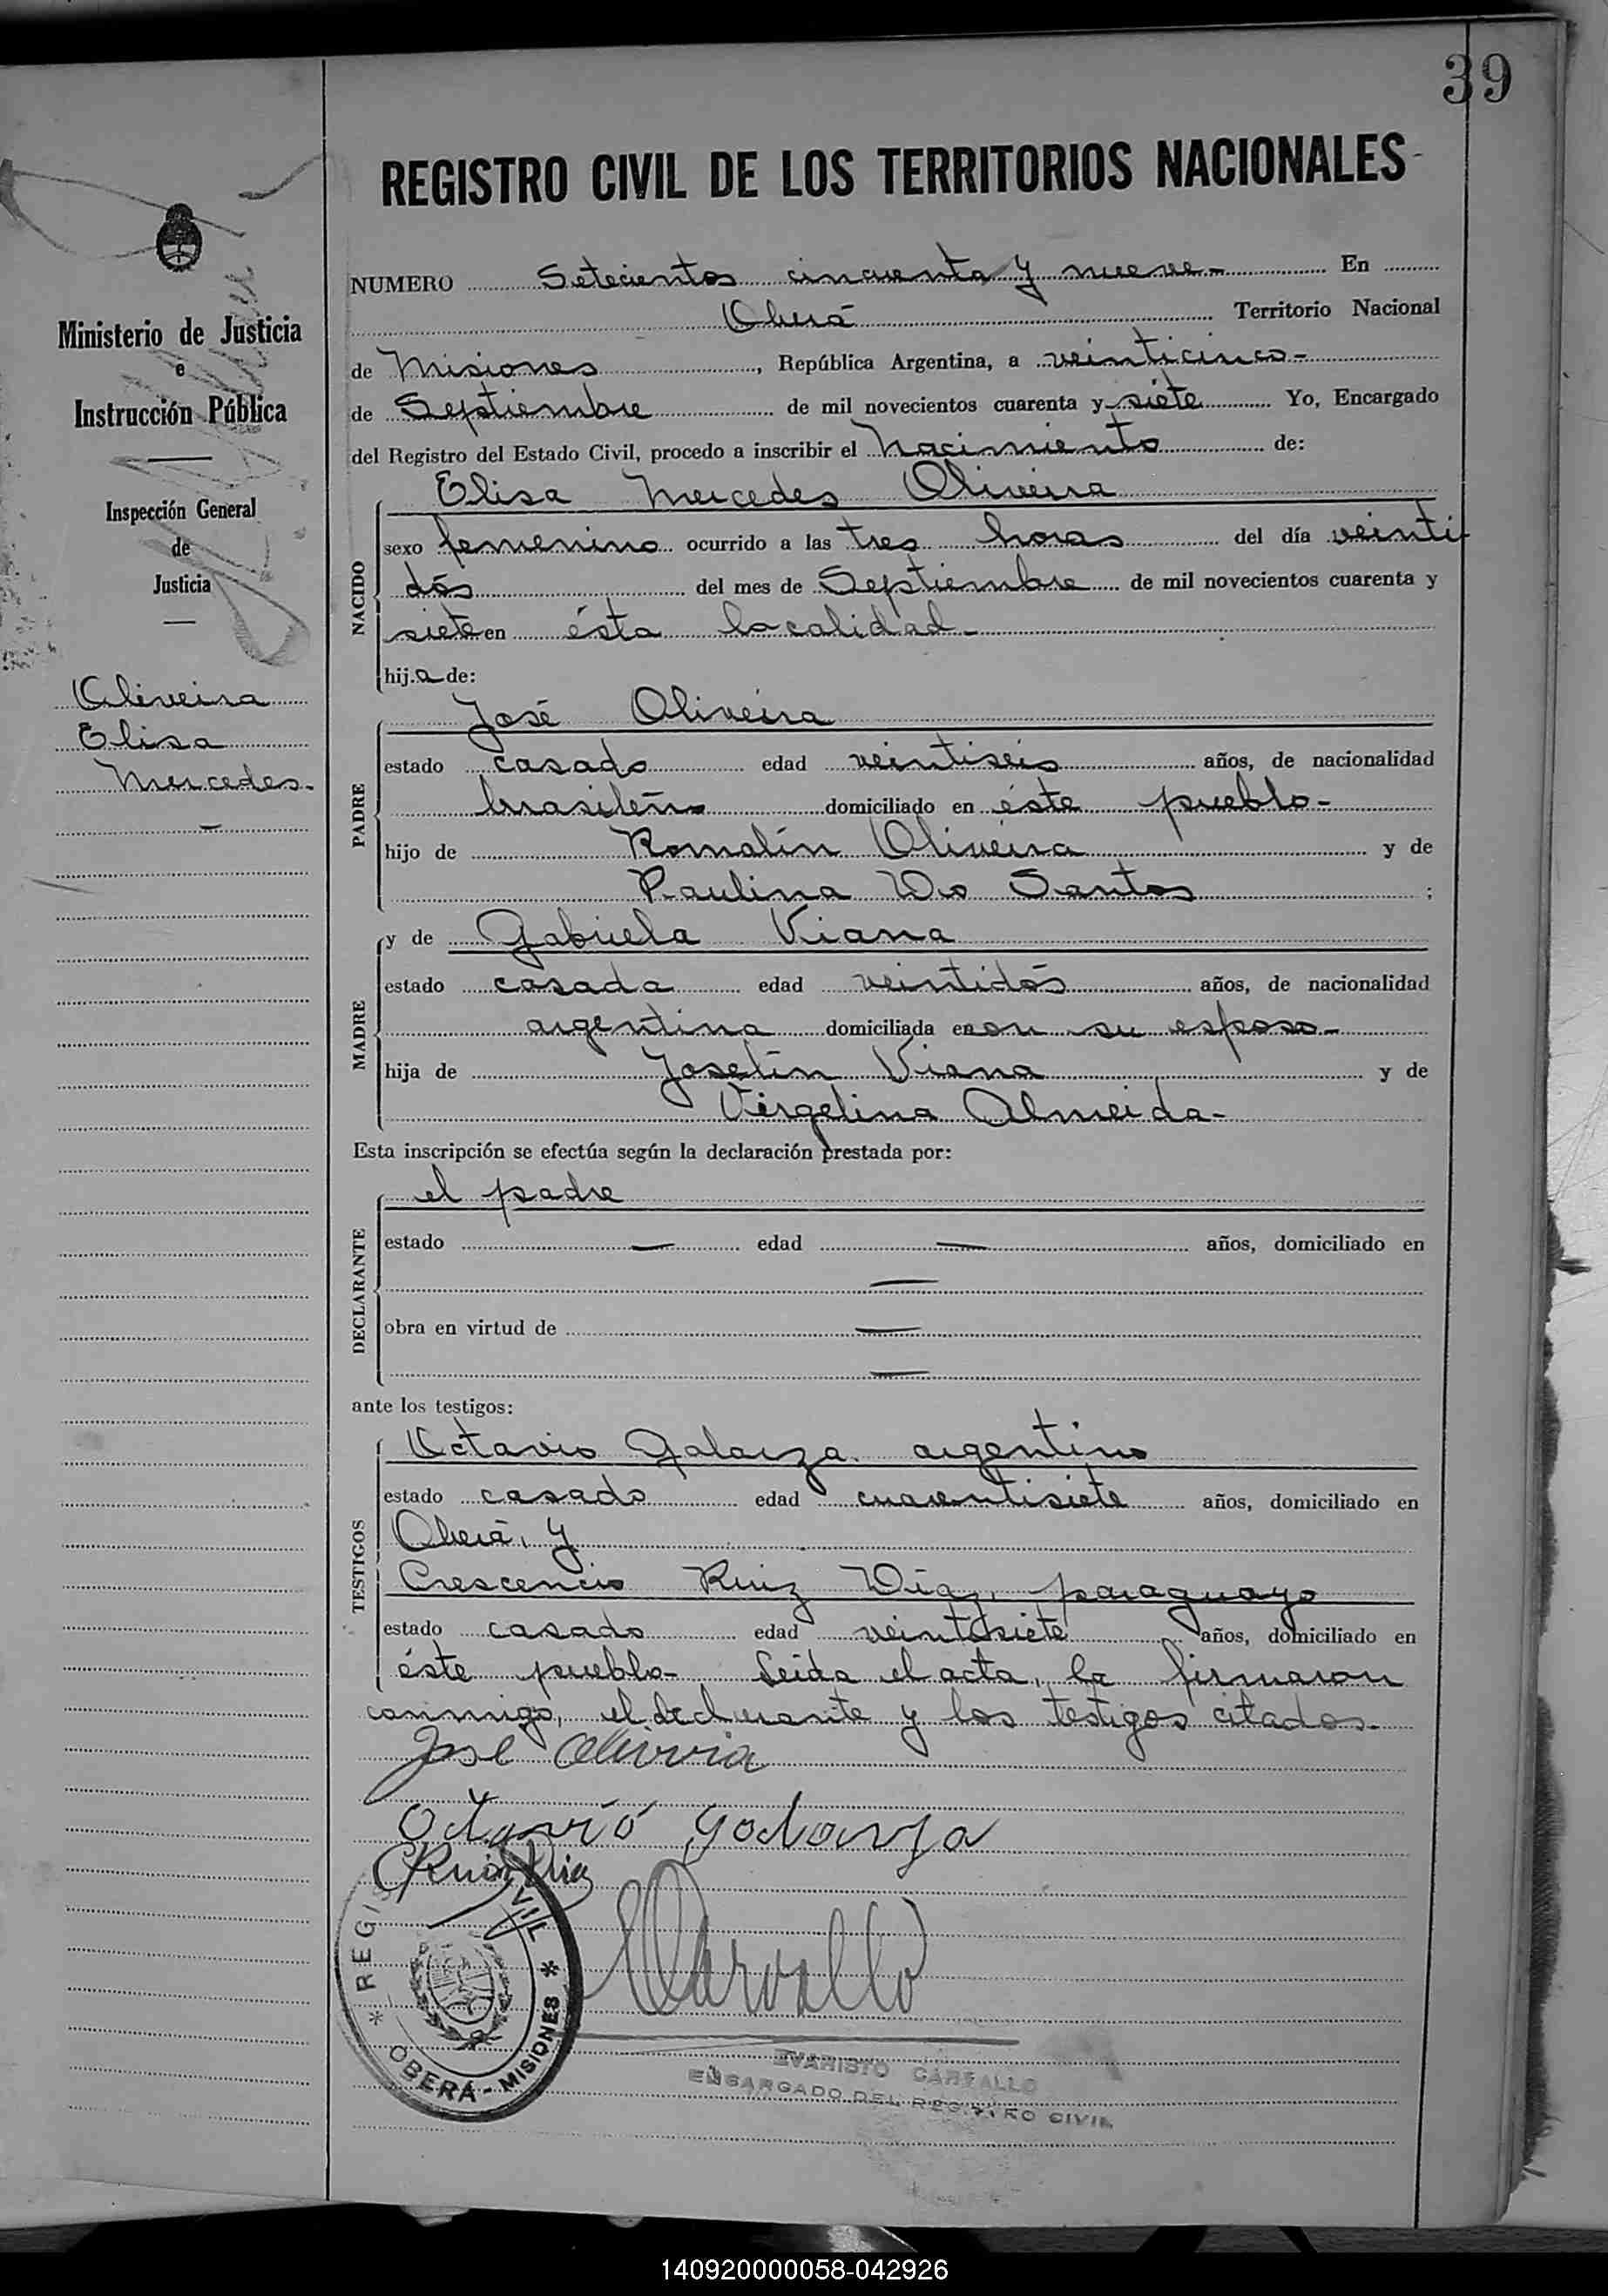 39
REGISTRO CIVIL DE LOS TERRITORIOS NACIONALES
Ministerio de Justicia
e
Instrucción Pública
Inspección General
de
Justicia
Oliveira
Elisa
Mercedes.-
NUMERO Setecientos cincuenta y nueve.- En
Oberá Territorio Nacional
de Misiones, República Argentina, a veinticinco-
de Septiembre de mil novecientos cuarenta y siete Yo, Encargado
del Registro del Estado Civil, procedo a inscribir el Nacimiento de:
Elisa Mercedes Oliveira
NACIDO
sexo femenino ocurrido a las tres horas del día veinti
dós del mes de Septiembre de mil novecientos cuarenta y
siete en ésta localidad-
hija de:
José Oliveira
PADRE
estado casado edad veintiséis años, de nacionalidad
brasileño domiciliado en éste pueblo-
hijo de Romalín Oliveira y de
Paulina Do Santos ;
y de Gabriela Viana
MADRE
estado casada edad veintidós años, de nacionalidad
argentina domiciliada en con su esposo-
hija de Joselín Viana y de
Virgelina Almeida-
Esta inscripción se efectúa según la declaración prestada por:
el padre
DECLARANTE
estado — edad — años, domiciliado en
—
obra en virtud de —
—
ante los testigos:
Octavio Galarza argentino
TESTIGOS
estado casado edad cuarentisiete años, domiciliado en
Oberá, y
Crescencio Ruiz Díaz, paraguayo
estado casado edad veintisiete años, domiciliado en
éste pueblo- Leida el acta, la firmaron
conmigo, el declarante y los testigos citados.-
José Olivira
Octavió Galarza
C Ruiz Diaz
Carvallo
REGIS VIL
OBERÁ - MISIONES
EVARISTO CARVALLO
ENCARGADO DEL REGISTRO CIVIL
140920000058-042926